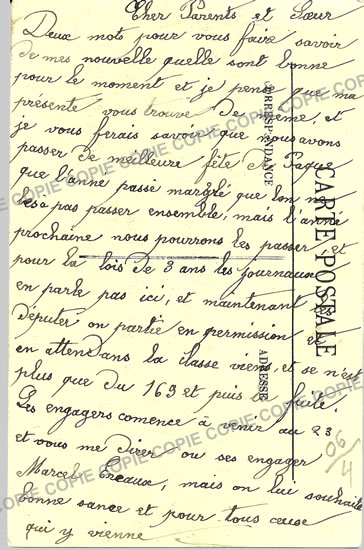 Cher Parents et Sœur
Deux mots pour vous faire savoir
de mes nouvelle quelle sont bonne
pour le moment et je pense que ma
présente vous trouve de meme, et
je vous ferais savoir que nous avons
passer de meilleure fête de Paque
que l'anne passé margré que lon
les a pas passer ensemble, mais l'année
prochaine nous pourrons les passer, et
pour la lois de 3 ans les journaux
en parte pas ici, et maintenant
députer on partie en permission et
en attendans la classe viens, et se n'est
plus que du 169 et puis la fuite.
Les engagers comence à venir au 23
et vous me direr ou ses engager
Marcel, mais on lui souhaite
bonne sance et pour tous ceuse
qui y vienne
CORRESPONDANCE
CARTE POSTALE
ADRESSE
COPIE COPIE COPIE COPIE COPIE
COPIE COPIE COPIE COPIE COPIE
COPIE COPIE COPIE COPIE COPIE